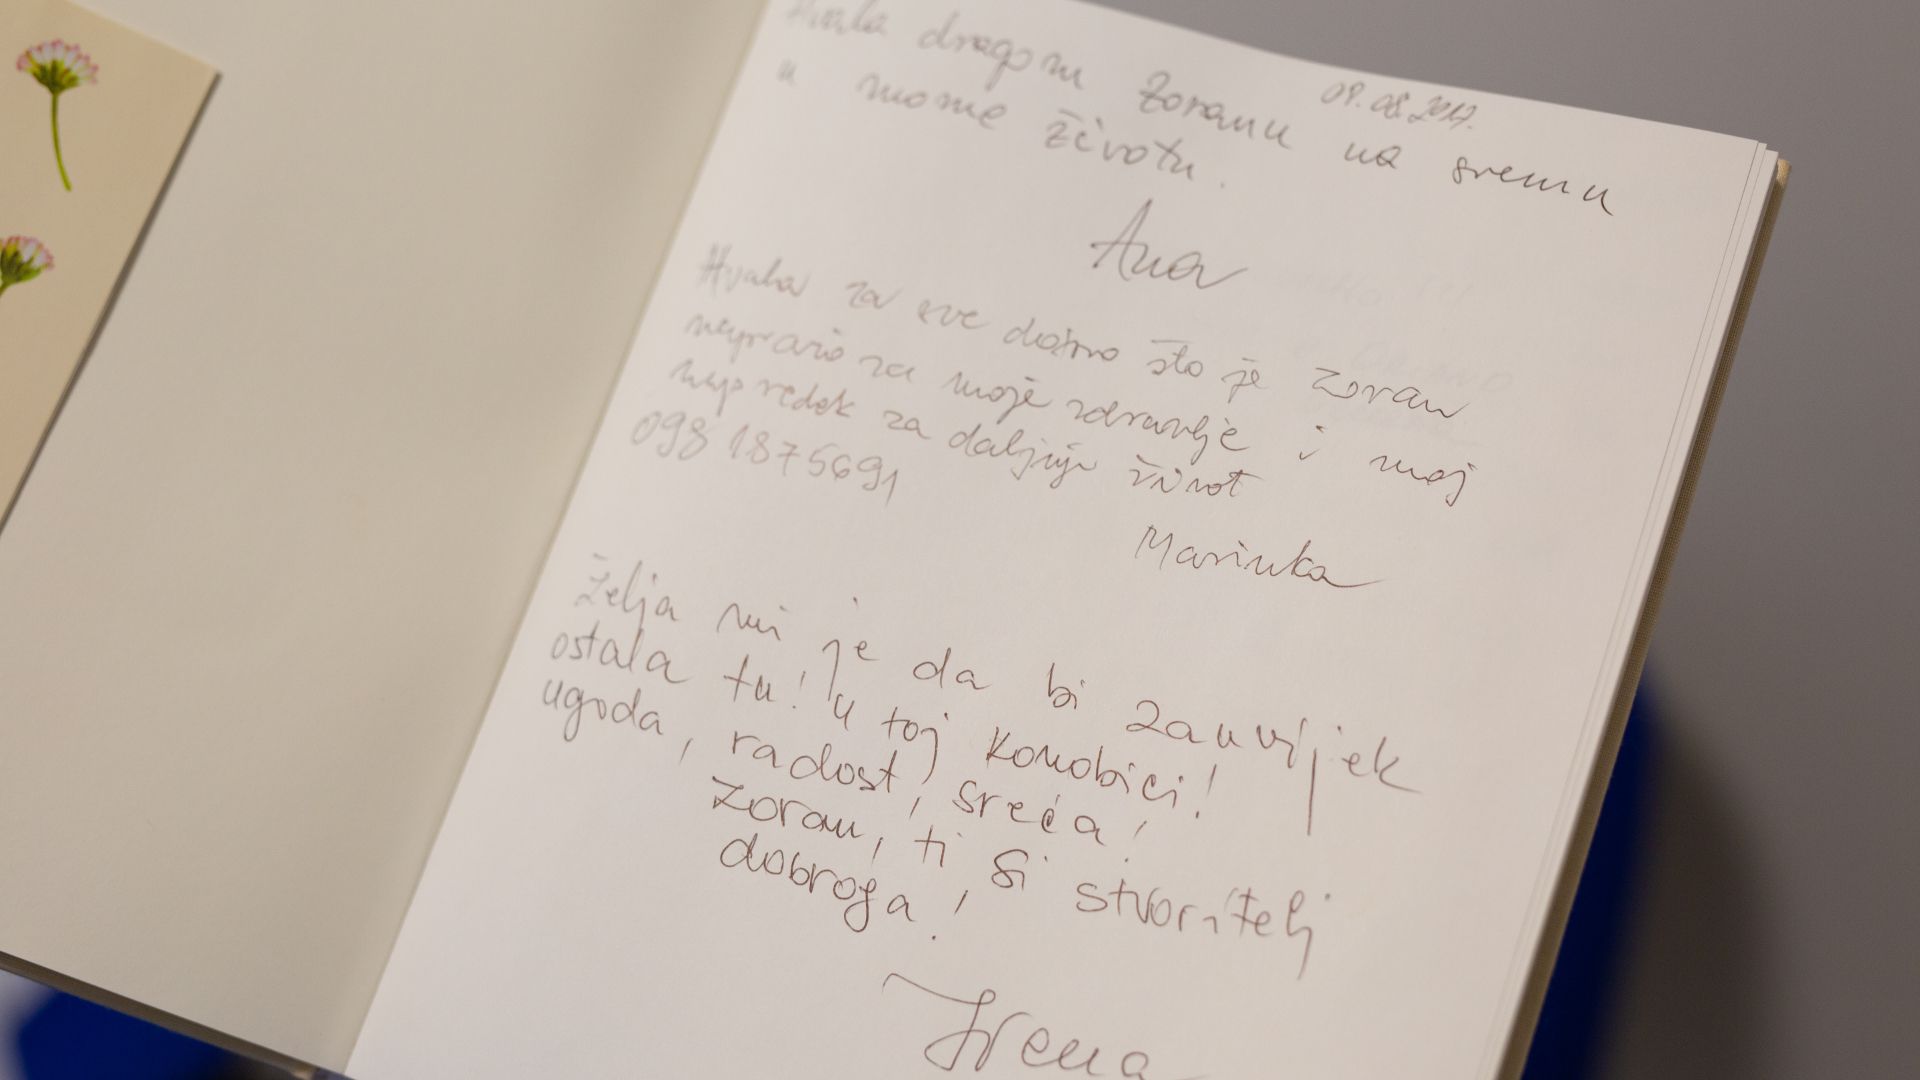 Hvala dragom Zoranu na svemu
09.08.2017.
u mome životu.
Ana
Hvala za sve dobro što je Zoran
napravio za moje zdravlje i moj
napredek za daljnji život
098 1875691
Marinka
Želja mi je da bi zauvijek
ostala tu! U toj konobici!
ugoda, radost, sreća!
Zoran, ti si stvoritelj
dobroga!
Irena